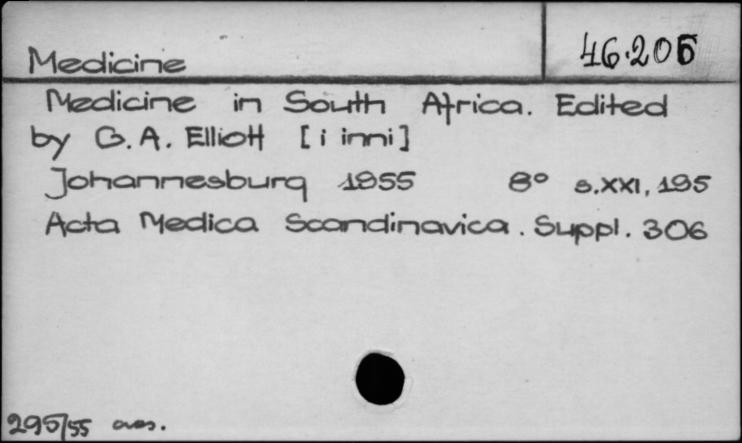 Medicine
46.205
Medicine in South Africa. Edited
by G.A. Elliott [i inni]
Johannesburg 1955 8° s.XXI, 195
Acta Medica Scandinavica. Suppl. 306
295/55